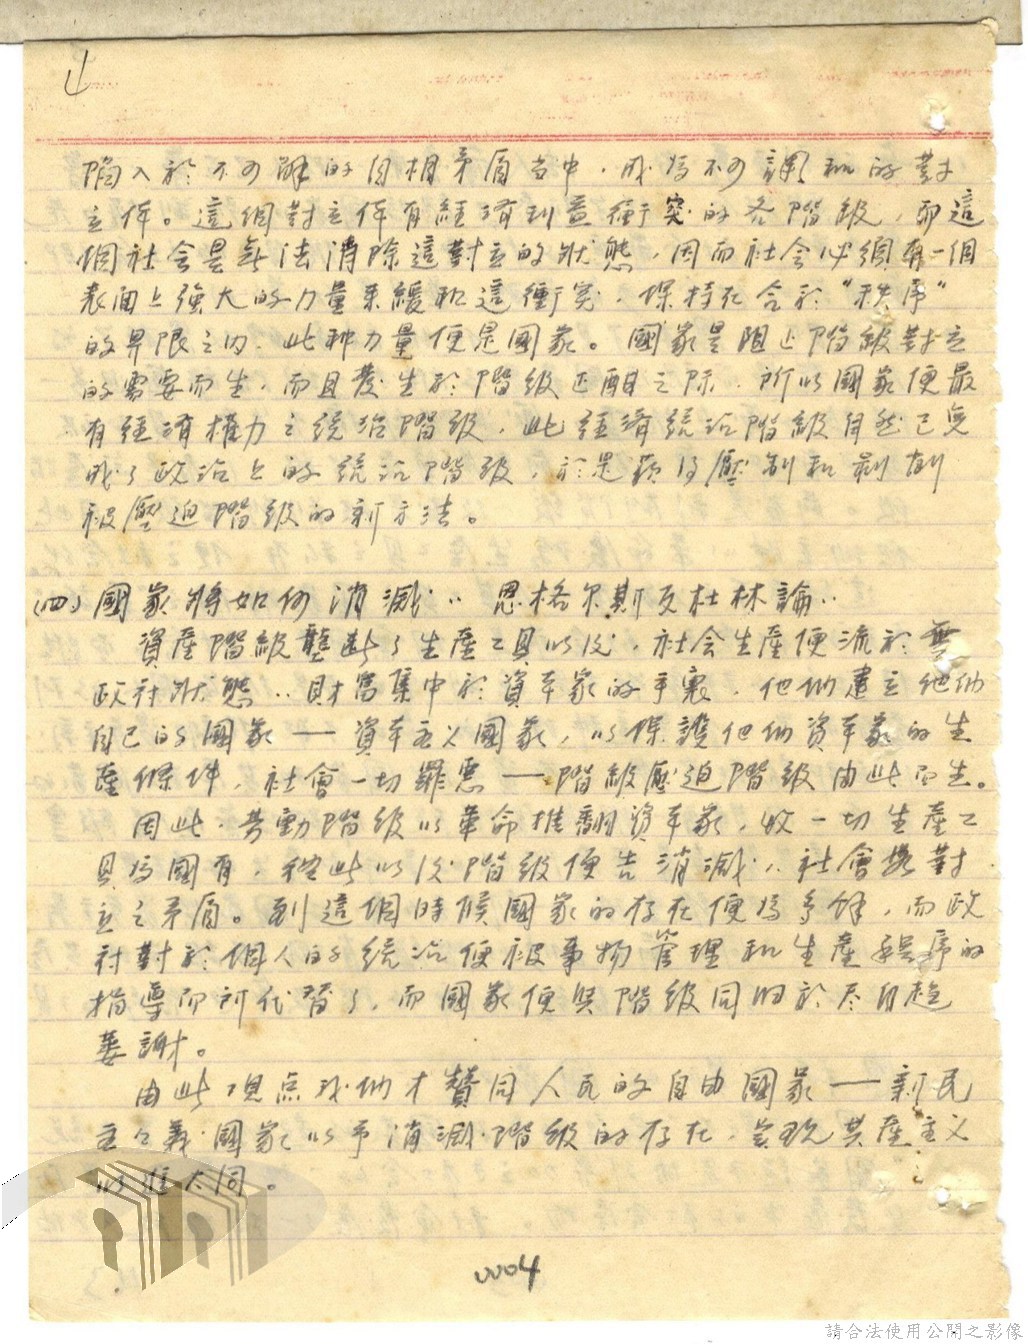 陷入於不可解的自相矛盾当中，成為不可調和的對
立体。這個對立体有經濟利益衝突的各階級，而這
個社会是無法消除這對立的狀態，因而社会必須有一個
表面上強大的力量來緩和這衝突，保持在合於"秩序"
的界限之内，此种力量便是國家。國家是阻止階級對立
的需要而生，而且發生於階級正酣之际，所以國家便最
有経済权力之統治階級，此経済統治階級自然已完
成了政治上的統治階級，於是獲得壓制和剝削
被壓迫階級的新方法。
(四)國家將如何消滅：恩格尔斯反杜林論：
資產階級壟断了生產工具以後，社会生產便流於無
政府狀態：財富集中於資本家的手裏，他们建立他们
自己的國家——資本主义國家，以保護他们資本家的生
產條件，社會一切罪惡——階級壓迫階級由此而生。
因此，劳動階級以革命推翻資本家，收一切生產工
具為國有，從此以後階級便告消滅，社會無對
立之矛盾。到這個時候國家的存在便為多餘，而政
府對於個人的統治便被事物管理和生產程序的
指導而所代替了，而國家便與階級同归於尽自趋
萎謝。
由此观点我们才贊同人民的自由國家——新民
主主義國家以予消滅階級的存在，实現共產主义
的大同。
0004
請合法使用公開之影像